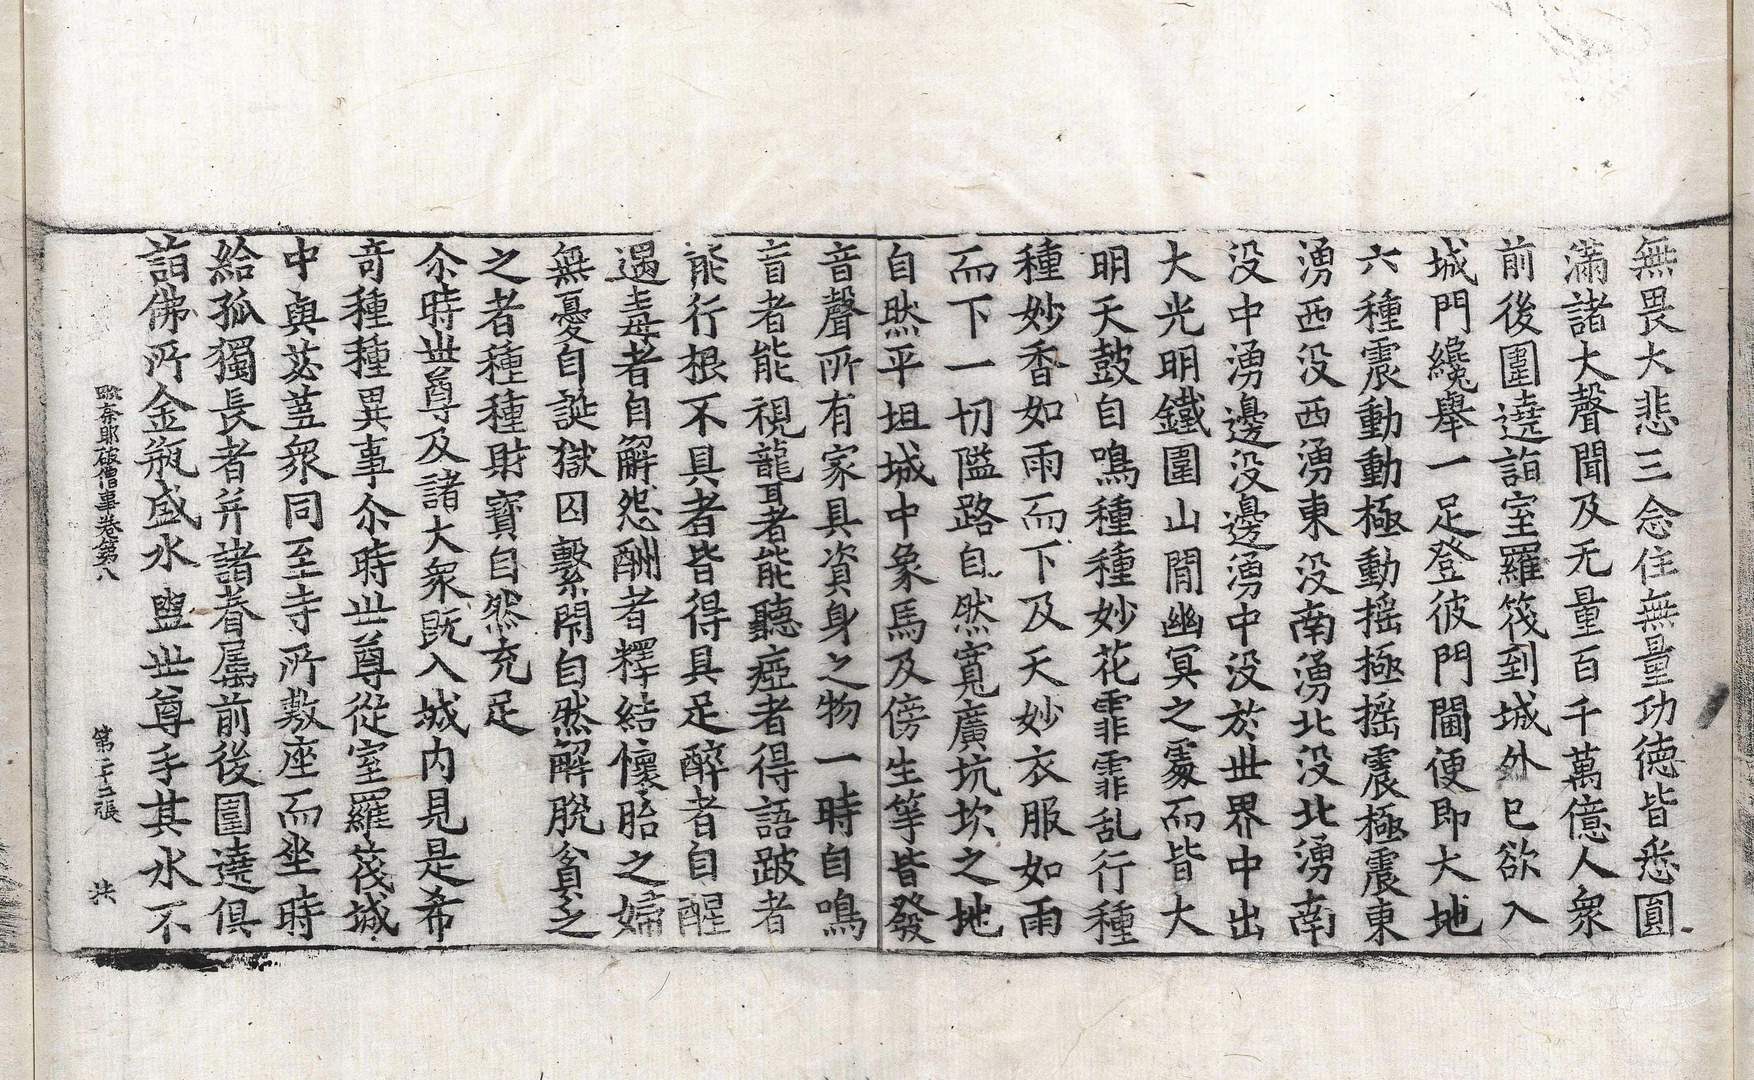 無畏大悲三念住無量功德皆悉圓
滿諸大聲聞及无量百千萬億人衆
前後圍遶詣室羅筏到城外已欲入
城門纔舉一足登彼門閫便即大地
六種震動動極動摇極摇震極震東
湧西没西湧東没南湧北没北湧南
没中湧邊没邊湧中没於世界中出
大光明鐵圍山間幽冥之處而皆大
明天鼓自鳴種種妙花霏霏乱行種
種妙香如雨而下及天妙衣服如雨
而下一切隘路自然寬廣坑坎之地
自然平坦城中象馬及傍生等皆發
音聲所有家具資身之物一時自鳴
盲者能視聾者能聽瘂者得語跛者
能行根不具者皆得具足醉者自醒
遇毒者自解怨酬者釋結懷胎之婦
無憂自誕獄囚繫閉自然解脫貧乏
之者種種財寶自然充足
尒時世尊及諸大衆既入城内見是希
奇種種異事尒時世尊從室羅筏城
中與苾蒭衆同至寺所敷座而坐時
給孤獨長者并諸眷屬前後圍遶俱
詣佛所金瓶盛水盥世尊手其水不
奈耶破僧事卷第八 第二十二張